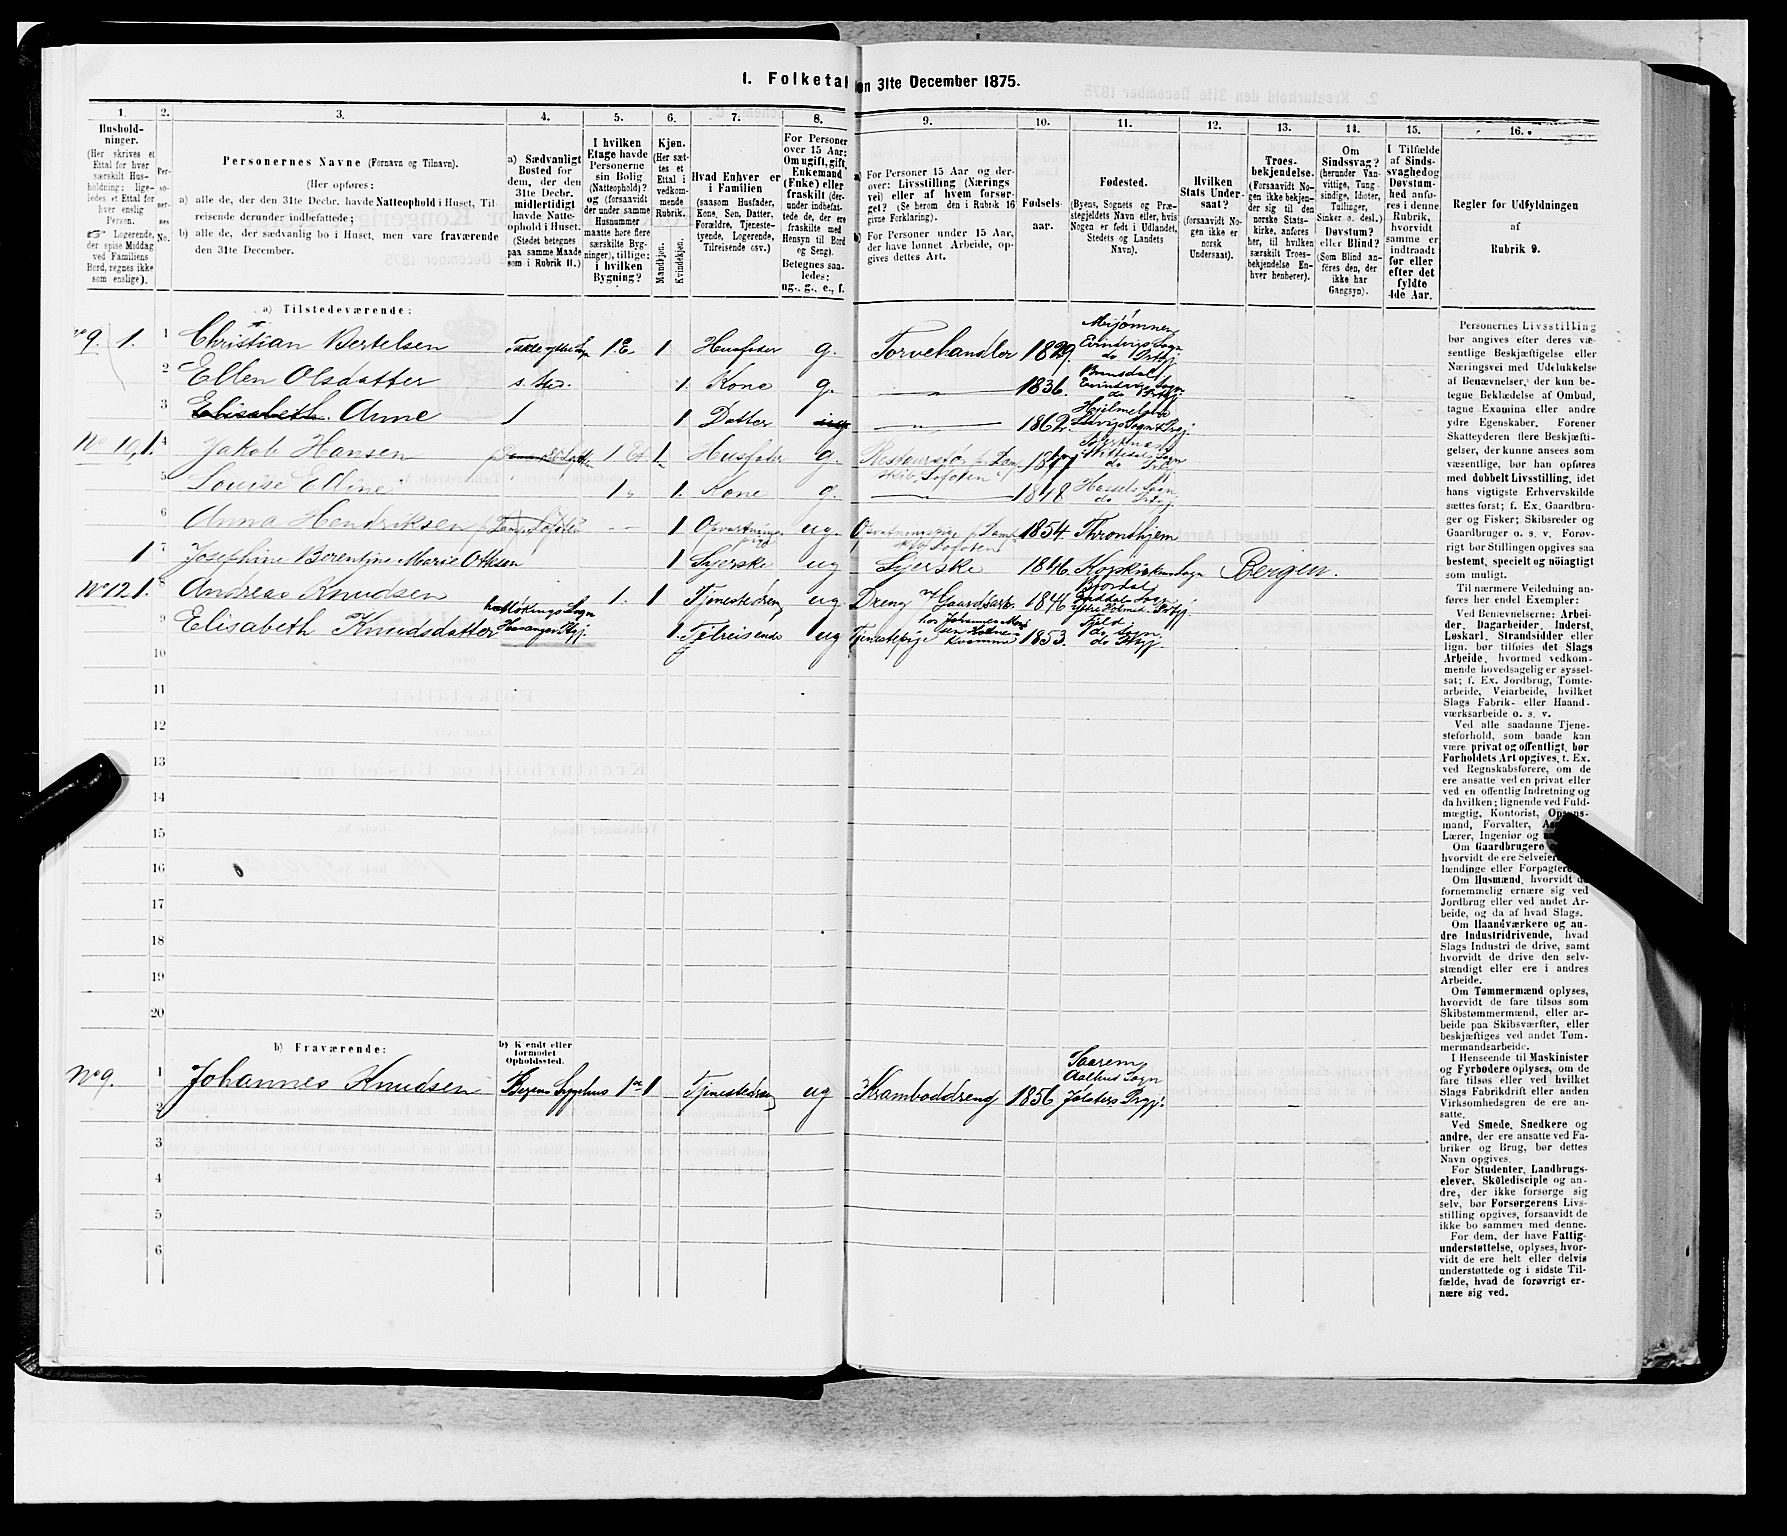 1. Folketal den 31te December 1875.
1. 2. 3. 4. 5. 6. 7. 8. 9. 10. 11. 12. 13. 14. 15. 16.
Hushold-
ninger.
(Her skrives et
Ettal for hver
særskilt Hus-
holdning; lige-
ledes et Ettal for
hver enslig
Person.
Logerende,
der spise Middag
ved Familiens
Bord, regnes ikke
som enslige).
Per-
so-
ner-
nes
No.
Personernes Navne (Fornavn og Tilnavn).
(Her opføres:
a) alle de, der den 31te Decbr. havde Natteophold i Huset, Til-
reisende derunder indbefattede;
b) alle de, der sædvanlig bo i Huset, men vare fraværende
den 31te December.
a) Sædvanligt
Bosted for
dem, der den
31te Decbr.
midlertidigt
havde Natte-
ophold i Huset.
(Stedet betegnes
paa samme Maade
som i Rubrik 11.)
I hvilken
Etage havde
Personerne
sin Bolig
(Natteophold)?
og (forsaavidt
der under samme
Husnummer
maatte høre flere
særskilte Byg-
ninger), tillige:
i hvilken
Bygning?
Kjøn.
(Her sæt-
tes et
Ettal i
vedkom-
mende
Rubrik.)
Mandkjøn.
Kvindekjøn.
Hvad Enhver er
i Familien
(saasom Husfader,
Kone, Søn, Datter,
Forældre, Tjeneste-
tyende, Logerende,
Tilreisende osv.)
For Personer
over 15 Aar:
Om ugift, gift,
Enkemand
(Enke) eller
fraskilt (der-
under indbefat-
tede de, der ere
fraskilte med
Hensyn til Bord
og Seng).
Betegnes saa-
ledes:
ug., g., e., f.
a) For Personer 15 Aar og der-
over: Livsstilling (Nærings
vei) eller af hvem forsør-
get? (Se herom den i Rubrik 16
givne Forklaring).
b) For Personer under 15 Aar,
der have lønnet Arbeide, op-
gives dettes Art.
Fødsels-
aar.
Fødested.
(Byens, Sognets og Præ-
stegjeldets Navn eller, hvis
Nogen er født i Udlandet,
Stedets og Landets
Navn).
Hvilken
Stats Under-
saat?
(forsaavidt No-
gen ikke er
norsk
Undersaat).
Troes-
bekjendelse.
(Forsaavidt No-
gen ikke bekjen-
der sig til den
norske Stats-
kirke, anføres
her, til hvilken
særskilt Troes-
bekjendelse En-
hver henhører).
Om
Sindssvag?
(herunder Van-
vittige, Tung-
sindige, Idioter,
Tullinger,
Sinker o. desl.)
Døvstum?
eller Blind?
(Som Blind an-
føres den, der
ikke har
Gangsyn).
I Tilfælde
af Sinds-
svaghed og
Døvstum-
hed anfø-
res i denne
Rubrik,
hvorvidt
samme er
indtraadt
før eller
efter det
fyldte
4de Aar.
Regler for Udfyldningen
af
Rubrik 9.
a) Tilstedeværende:
No 9. 1. 1 Christian Bertelsen 1 Husfader g. Torvehandler 1829 Evindvigs Sogn do Prstgj.
2 Ellen Olsdatter 1. Kone g. 1836. Evindvigs Sogn do Prstgj
3 Elisabeth Anne 1 Datter 1862.
No 10, 1. 4 Jakob Hansen 1 Et. 1. Husfader g.
5 Louise Elline 1 1. Kone g. 1848 Hassels Sogn do Prstgj.
6 Anna Hendriksen 1 ug. 1854. Thronthjem
1 7 Josephine Berentine Marie Ottesen 1 Syerske ug Syerske 1846. Korskirkens Sogn Bergen.
No 12 1. 8 Andreas Knudsen 1. 1 Tjenestedreng ug Dreng Gaardsarb. 1846
9 Elisabeth Knudsdatter 1. Tilreisende ug Tjenestepige 1853. Fjeld do Sogn do Prstgj.
10
11
12
13
14
15
16
17
18
19
20
b) Fraværende:
b) Kjendt eller
formodet
Opholdssted.
No 9. 1 Johannes Knudsen Bergens Sygehus 1 Tjenestedreng ug Kramboddreng 1856 Aalhus Sogn Jølsters Prgj.
2
3
4
5
6
Personernes Livsstilling
bør angives efter deres væ-
sentlige Beskjæftigelse eller
Næringsvei med Udelukkelse
af Benævnelser, der kun be-
tegne Beklædelse af Ombud,
tagne Examina eller andre
ydre Egenskaber. Forener
Skatteyderen flere Beskjæf-
tigelser, der kunne ansees som
væsentlige, bør han opføres
med dobbelt Livsstilling, idet
hans vigtigste Erhvervskilde
sættes først; f. Ex. Gaardbru-
ger og Fisker; Skibsreder og
Gaardbruger o. s. v. Forøv-
rigt bør Stillingen opgives saa
bestemt, specielt og nøiagtigt
som muligt.
Til nærmere Veiledning an-
føres her endel Exempler:
Ved Benævnelserne: Arbei-
der, Dagarbeider, Inderst,
Løskarl, Strandsidder eller
lign. bør tilføies det Slags
Arbeide, hvormed vedkom-
mende hovedsagelig er syssel-
sat; f. Ex. Jordbrug, Tomte-
arbeide, Veiarbeide, hvilket
Slags Fabrik- eller Haand-
værksarbeide o. s. v.
Ved alle saadanne Tjene-
steforhold, som baade kan
være privat og offentligt, bør
Forholdets Art opgives, f. Ex.
ved Regnskabsførere, om de
ere ansatte ved en privat eller
ved en offentlig Indretning og
da hvilken; lignende ved Fuld-
mægtig, Kontorist, Opsyns-
mand, Forvalter,
Lærer, Ingeniør og
Om Gaardbrugere
hvorvidt de ere Selveiere,
lændinge eller Forpagtere.
Om Husmænd, hvorvidt de
fornemmelig ernære sig ved
Jordbrug eller ved andet Ar-
beide, og da af hvad Slags.
Om Haandværkere og an-
dre Industridrivende, hvad
Slags Industri de drive, samt
hvorvidt de drive den selv-
stændigt eller ere i andres
Arbeide.
Om Tømmermænd oplyses,
hvorvidt de fare tilsøs som
Skibstømmermænd, eller ar-
beide paa Skibsværfter, eller
beskjæftiges ved andet Tøm-
mermandsarbeide.
I Henseende til Maskinister
og Fyrbødere oplyses, om de
fare tilsøs eller ved hvilket
Slags Fabrikdrift eller anden
Virksomhedsgren de ere an-
satte.
Ved Smede, Snedkere og
andre, der ere ansatte ved Fa-
briker og Brug, bør dettes
Navn opgives.
For Studenter, Landbrugs-
elever, Skoledisciple og an-
dre, der ikke forsørge sig
selv, bør Forsørgerens Livs-
stilling opgives, forsaavidt de
ikke bo sammen med denne.
For dem, der have Fattig-
understøttelse, oplyses, hvor-
vidt de ere helt eller delvis
understøttede og i sidste Til-
fælde, hvad de forøvrigt er-
nære sig ved.